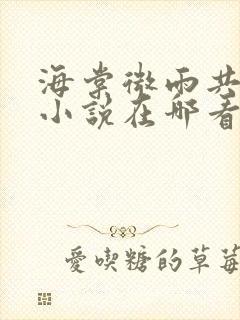 海棠微雨共
小說在哪看
愛喫糖的草莓